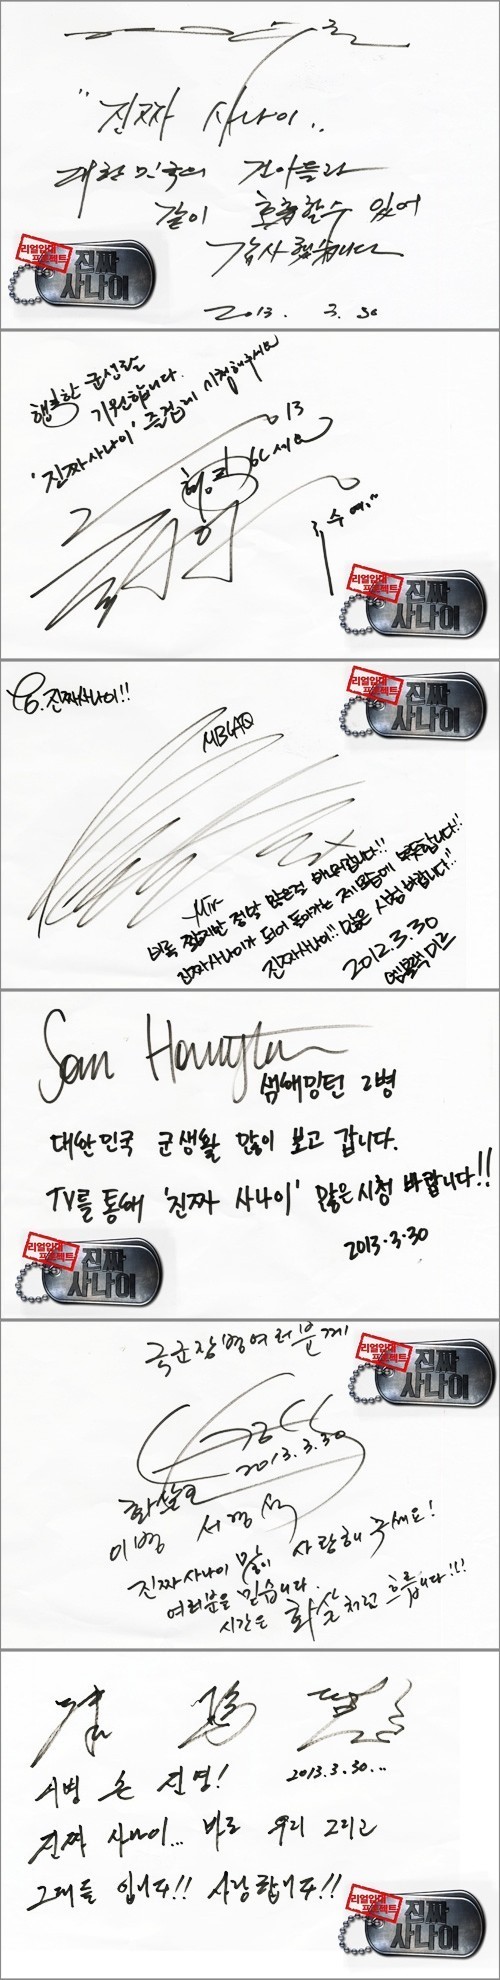 "진짜 사나이..
대한민국의 건아들과
같이 호흡할수 있어
감사했습니다
2013. 3. 30
리얼입대
프로젝트
진짜
사나이
행복한 군생활
기원합니다.
'진짜 사나이' 즐겁게 시청해주세요
13
리얼입대
프로젝트
진짜
사나이
진짜사나이!!
MBLAQ
리얼입대
프로젝트
진짜
사나이
Mir
비록 짧지만 정말 많은걸
진짜 사나이가 되어 돌아가는 제 모습에 뿌듯합니다!!
진짜사나이!! 많은 시청 바랍니다!!
2012.3.30
엠블랙 미르
Sam Hamington
샘해밍턴 2병
대한민국 군생활 많이 보고 갑니다.
TV를 통해 '진짜 사나이' 많은 시청 바랍니다!!
2013.3.30
리얼입대
프로젝트
진짜
사나이
국군장병여러분께
리얼입대
프로젝트
진짜
사나이
2013.3.30
이병 서경석
진짜사나이 많이 사랑해 주세요!
여러분을 믿습니다.
시간은 화살처럼 흐릅니다!!!
이병 손진영!
2013.3.30...
진짜 사나이... 바로 우리 그리고
그대들 입니다!! 사랑합니다!!
리얼입대
프로젝트
진짜
사나이